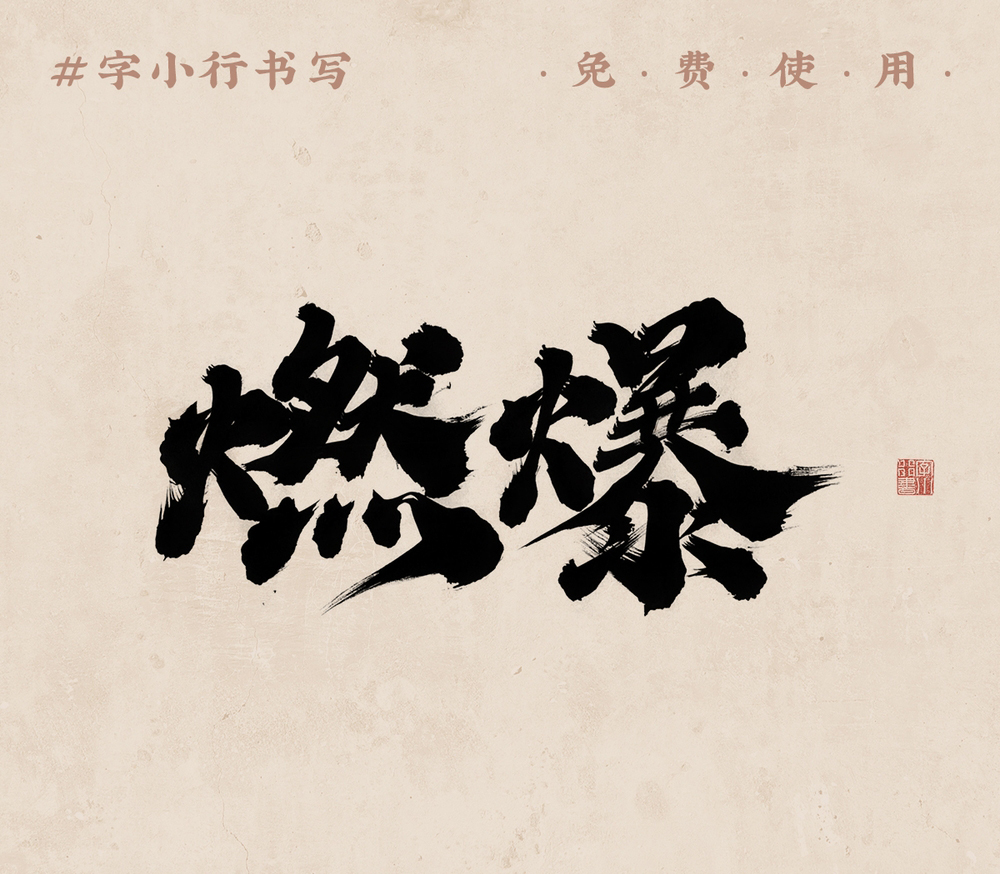 #字小行书写
·免·费·使·用·
燃爆